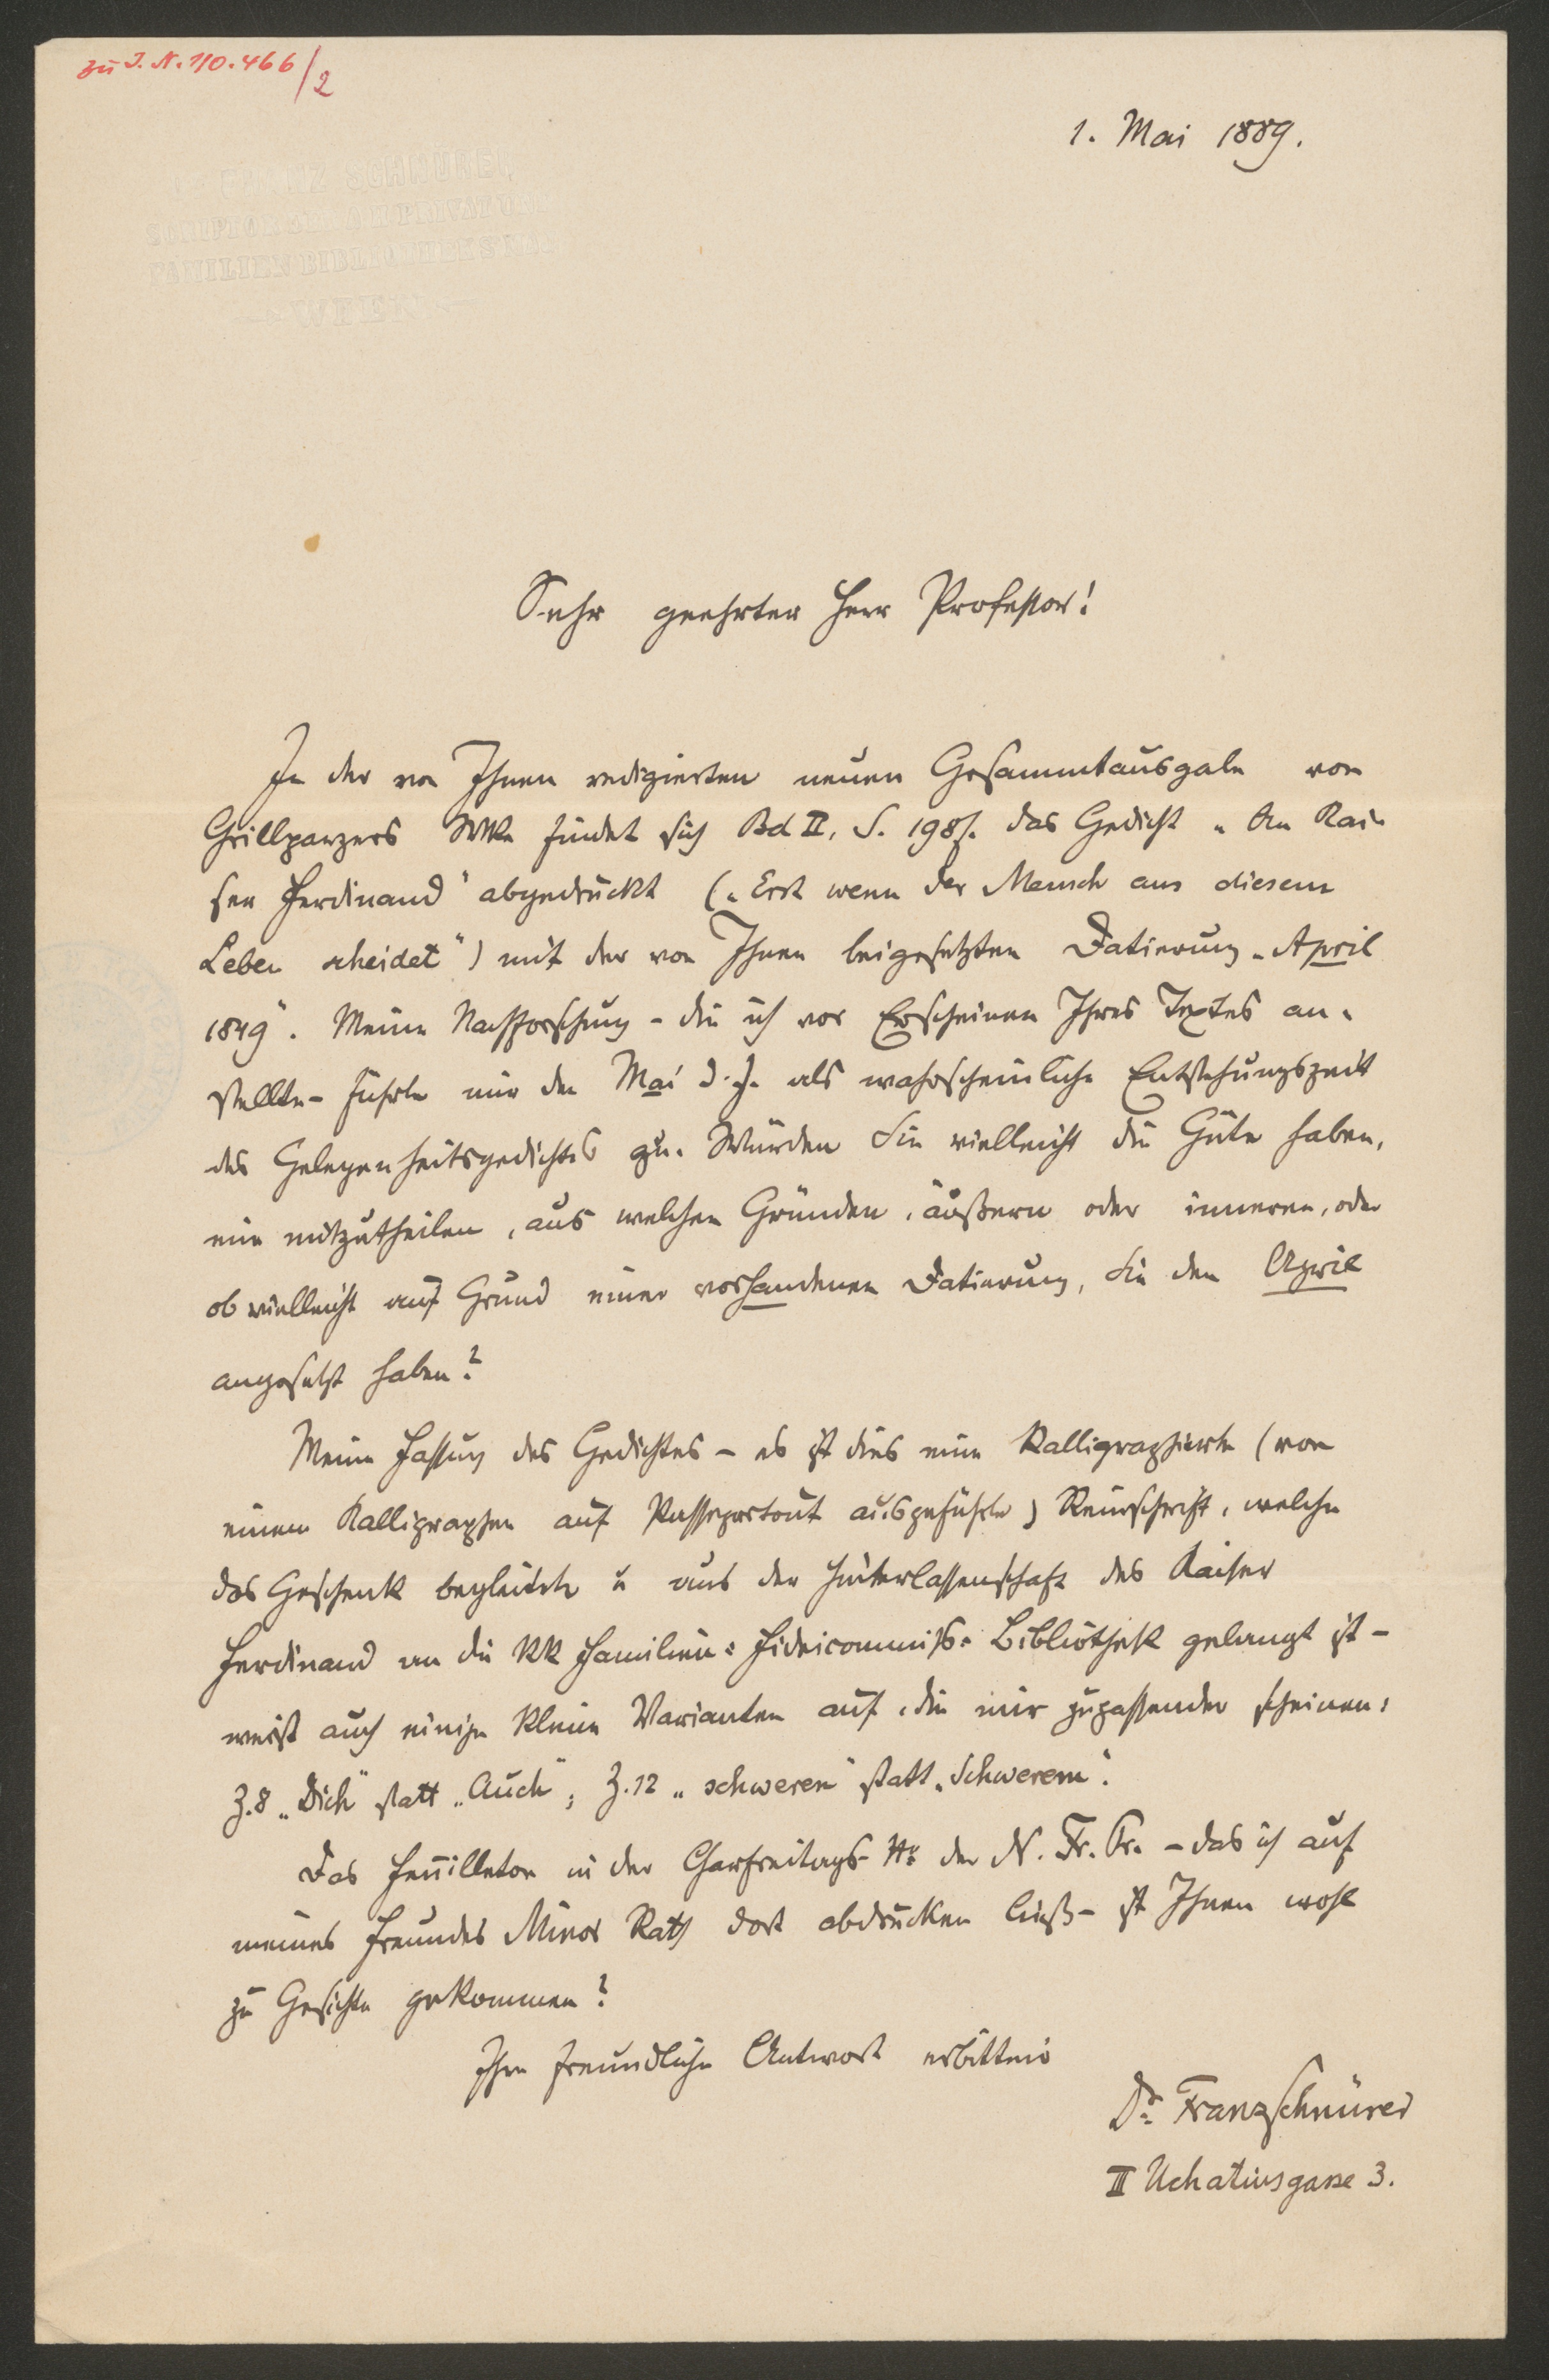 zu I. N. 110.466/2
1. Mai 1889.
Sehr geehrter Herr Professor!
In der von Ihnen redigierten neuen Gesammtausgabe von
Grillparzers WKn findet sich Bd II, S. 198f. das Gedicht „An Kai-
ser Ferdinand" abgedruckt („Erst wenn der Mensch aus diesem
Leben scheidet") mit der von Ihnen beigesetzten Datierung „April
1849". Meine Nachforschung – die ich vor Erscheinen Ihres Textes an-
stellte – führte mir den Mai d. J. als wahrscheinliche Entstehungszeit
des Gelegenheitsgedichtes zu. Würden Sie vielleicht die Güte haben,
mir mitzutheilen, aus welchen Gründen, äußern oder inneren, oder
ob vielleicht auf Grund einer vorhandenen Datierung, Sie den April
angesetzt haben?
Meine Fassung des Gedichtes – es ist dies eine kalligraphierte (von
einem Kalligraphen auf Passepartout ausgeführte) Reinschrift, welche
das Geschenk begleitete u aus der Hinterlassenschaft des Kaiser
Ferdinand an die KK Familien-Fideicommiß-Bibliothek gelangt ist –
weist auch einige kleine Varianten auf, die mir zupassender scheinen:
Z. 8 „Dich" statt „Auch", Z. 12 „schweren" statt „Schwerem".
Das Feuilleton in der Charfreitags-Nr der N. Fr. Pr. – das ich auf
meines Freundes Minor Rath dort abdrucken ließ – ist Ihnen wohl
zu Gesichte gekommen?
Ihre freundliche Antwort erbittend
Dr. Franz Schnürer
III Uchatiusgasse 3.